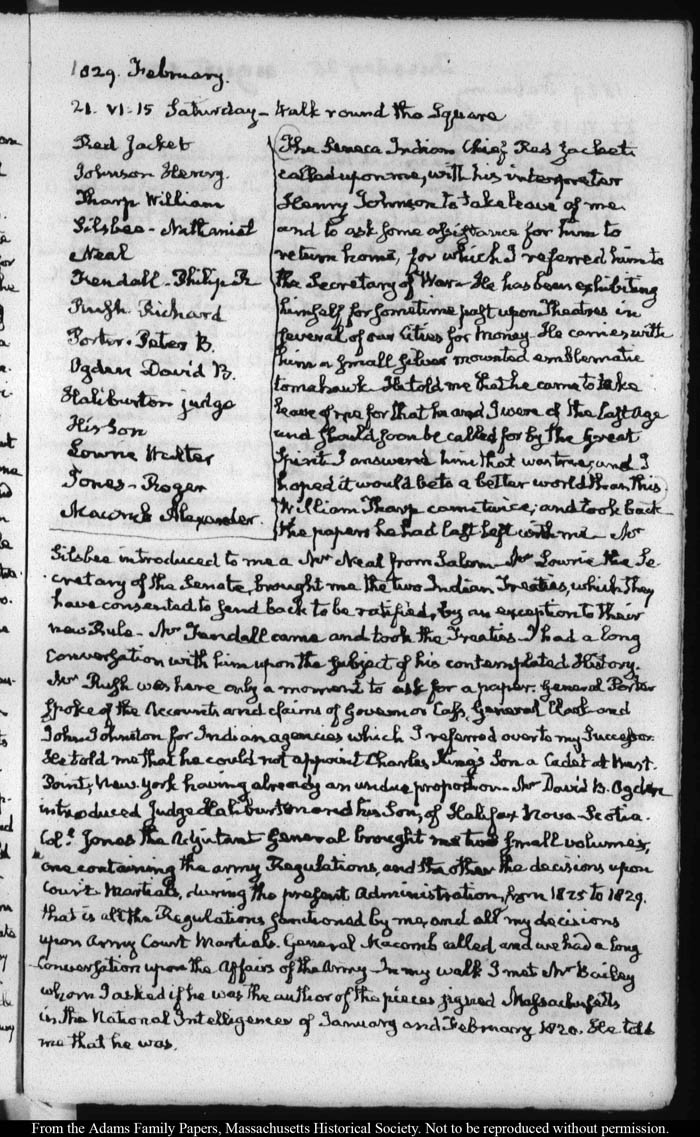 1829. February.
21. VI:15 Saturday – Walk round the Square
Red Jacket
Johnson Henry.
Tharp William
Silsbee - Nathaniel
Neal
Kendall - Philip R
Rush Richard
Porter. Peter B.
Ogden David B.
Haliburton judge
His Son
Lowrie Walter
Jones - Roger
Macomb Alexander.
The Seneca Indian Chief Red Jacket
called upon me, with his interpreter
Henry Johnson to take leave of me
and to ask some assistance for him to
return home, for which I referred him to
the Secretary of War – He has been exhibiting
himself for sometime past upon Theatres in
several of our Cities for Money. He carries with
him a small silver mounted emblematic
tomahawk. He told me that he came to take
leave of me for that he and I were of the last age
and should soon be called for by the Great
Spirit. I answered him that was true, and I
hoped it would be to a better world than this
William Tharp came twice, and took back
the papers he had last left with me – Mr
Silsbee introduced to me a Mr Neal from Salem – Mr Lowrie the Se-
cretary of the Senate, brought me the two Indian Treaties, which they
have consented to send back to be ratified, by an exception to their
new Rule – Mr Fendall came and took the Treaties – I had a long
Conversation with him upon the subject of his contemplated History.
Mr Rush was here only a moment to ask for a paper. General Porter
spoke of the Accounts and claims of Governor Cass, General Clark and
John Johnston for Indian agencies which I referred over to my Successor.
He told me that he could not appoint Charles King's Son a Cadet at West-
Point, New York having already an undue proportion – Mr David B. Ogden
introduced Judge Haliburton and his Son, of Halifax Nova-Scotia.
Coll. Jones the Adjutant General brought me two small volumes,
one containing the army Regulations, and the other the decisions upon
Court-Martials, during the present Administration, from 1825 to 1829.
that is all the Regulations sanctioned by me, and all my decisions
upon Army Court Martials. General Macomb called, and we had a long
Conversation upon the Affairs of the Army – In my walk I met Mr Bailey
whom I asked if he was the author of the pieces signed Massachusetts
in the National Intelligencer of January and February 1820. He told
me that he was.
From the Adams Family Papers, Massachusetts Historical Society. Not to be reproduced without permission.